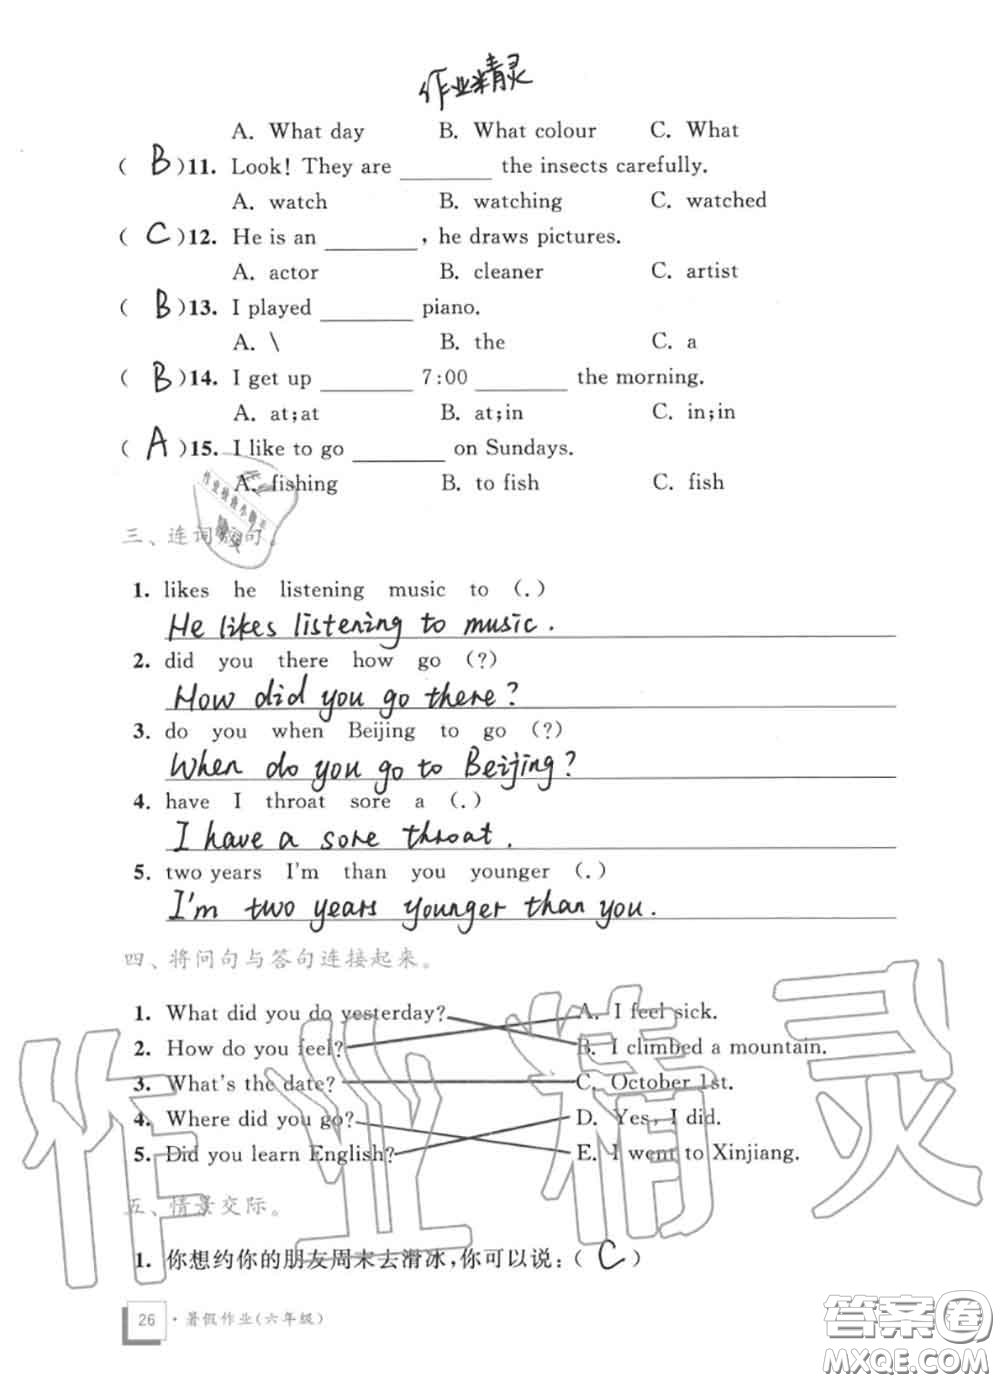 作业精灵
A. What day B. What colour C. What
( B )11. Look! They are ________ the insects carefully.
A. watch B. watching C. watched
( C )12. He is an ________, he draws pictures.
A. actor B. cleaner C. artist
( B )13. I played ________ piano.
A. \ B. the C. a
( B )14. I get up ________ 7:00 ________ the morning.
A. at;at B. at;in C. in;in
( A )15. I like to go ________ on Sundays.
A. fishing B. to fish C. fish
三、连词 句。
1. likes he listening music to (.)
He likes listening to music.
2. did you there how go (?)
How did you go there?
3. do you when Beijing to go (?)
When do you go to Beijing?
4. have I throat sore a (.)
I have a sore throat.
5. two years I'm than you younger (.)
I'm two years younger than you.
四、将问句与答句连接起来。
1. What did you do yesterday? A. I feel sick.
2. How do you feel? B. I climbed a mountain.
3. What's the date? C. October 1st.
4. Where did you go? D. Yes, I did.
5. Did you learn English? E. I went to Xinjiang.
作业精灵
五、情景交际。
1. 你想约你的朋友周末去滑冰,你可以说:( C )
26 · 暑假作业(六年级)
答案圈
MXQE.COM